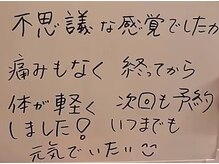 不思議な感覚でしたが
痛みもなく 終ってから
体が軽く 次回も予約
しました! いつまでも
元気でいたい